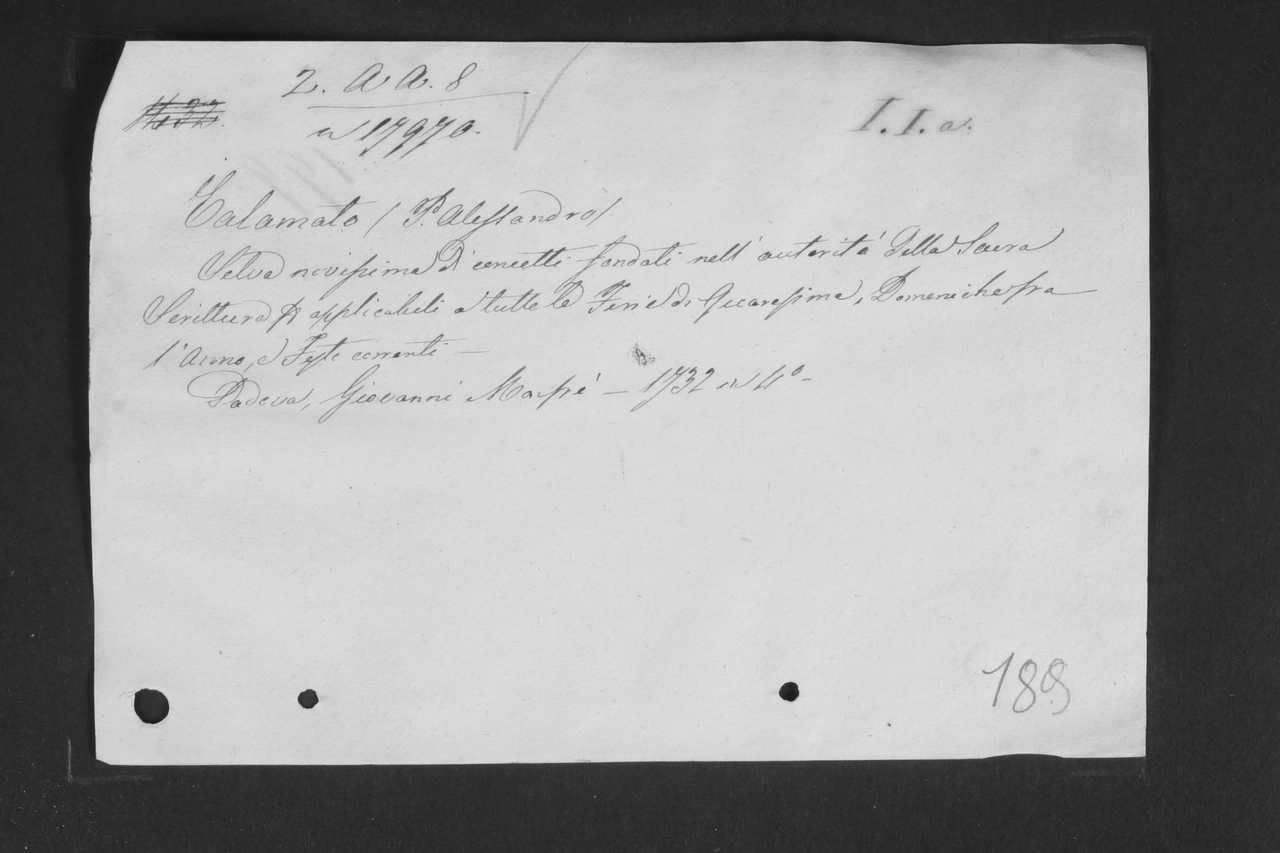 2. A A. 8
n 17970.
I. I. a.
Calamato (P. Alessandro)
Selva novissima di concetti fondati nell' autorità della Sacra
Scrittura applicabili a tutte le Ferie di Quaresima, Domeniche fra
l'Anno, e Feste correnti —
Padova, Giovanni Manfrè — 1732 in 4º —
189